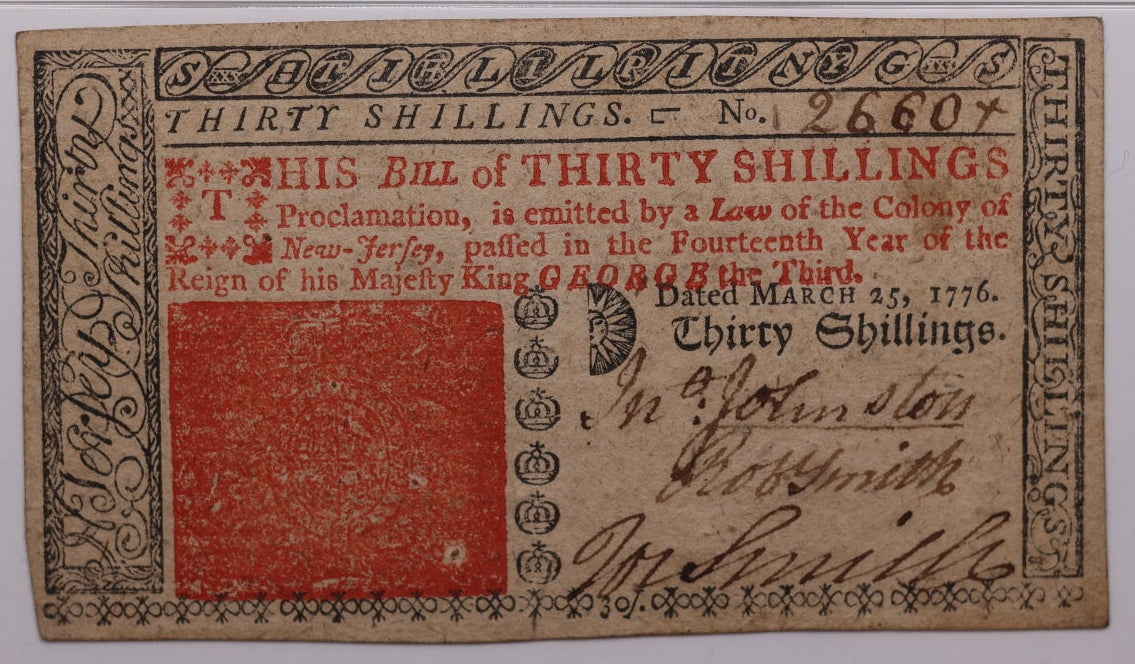 N Jerſey Thirty Shillings
THIRTY SHILLINGS. No. 26604
THIS BILL of THIRTY SHILLINGS
Proclamation, is emitted by a Law of the Colony of
New-Jerſey, paſſed in the Fourteenth Year of the
Reign of his Majeſty King GEORGE the Third.
Dated MARCH 25, 1776.
Thirty Shillings.
Jnº. Johnston
Rob Smith
Jos Smith
30ſ.
THIRTY SHILLINGS